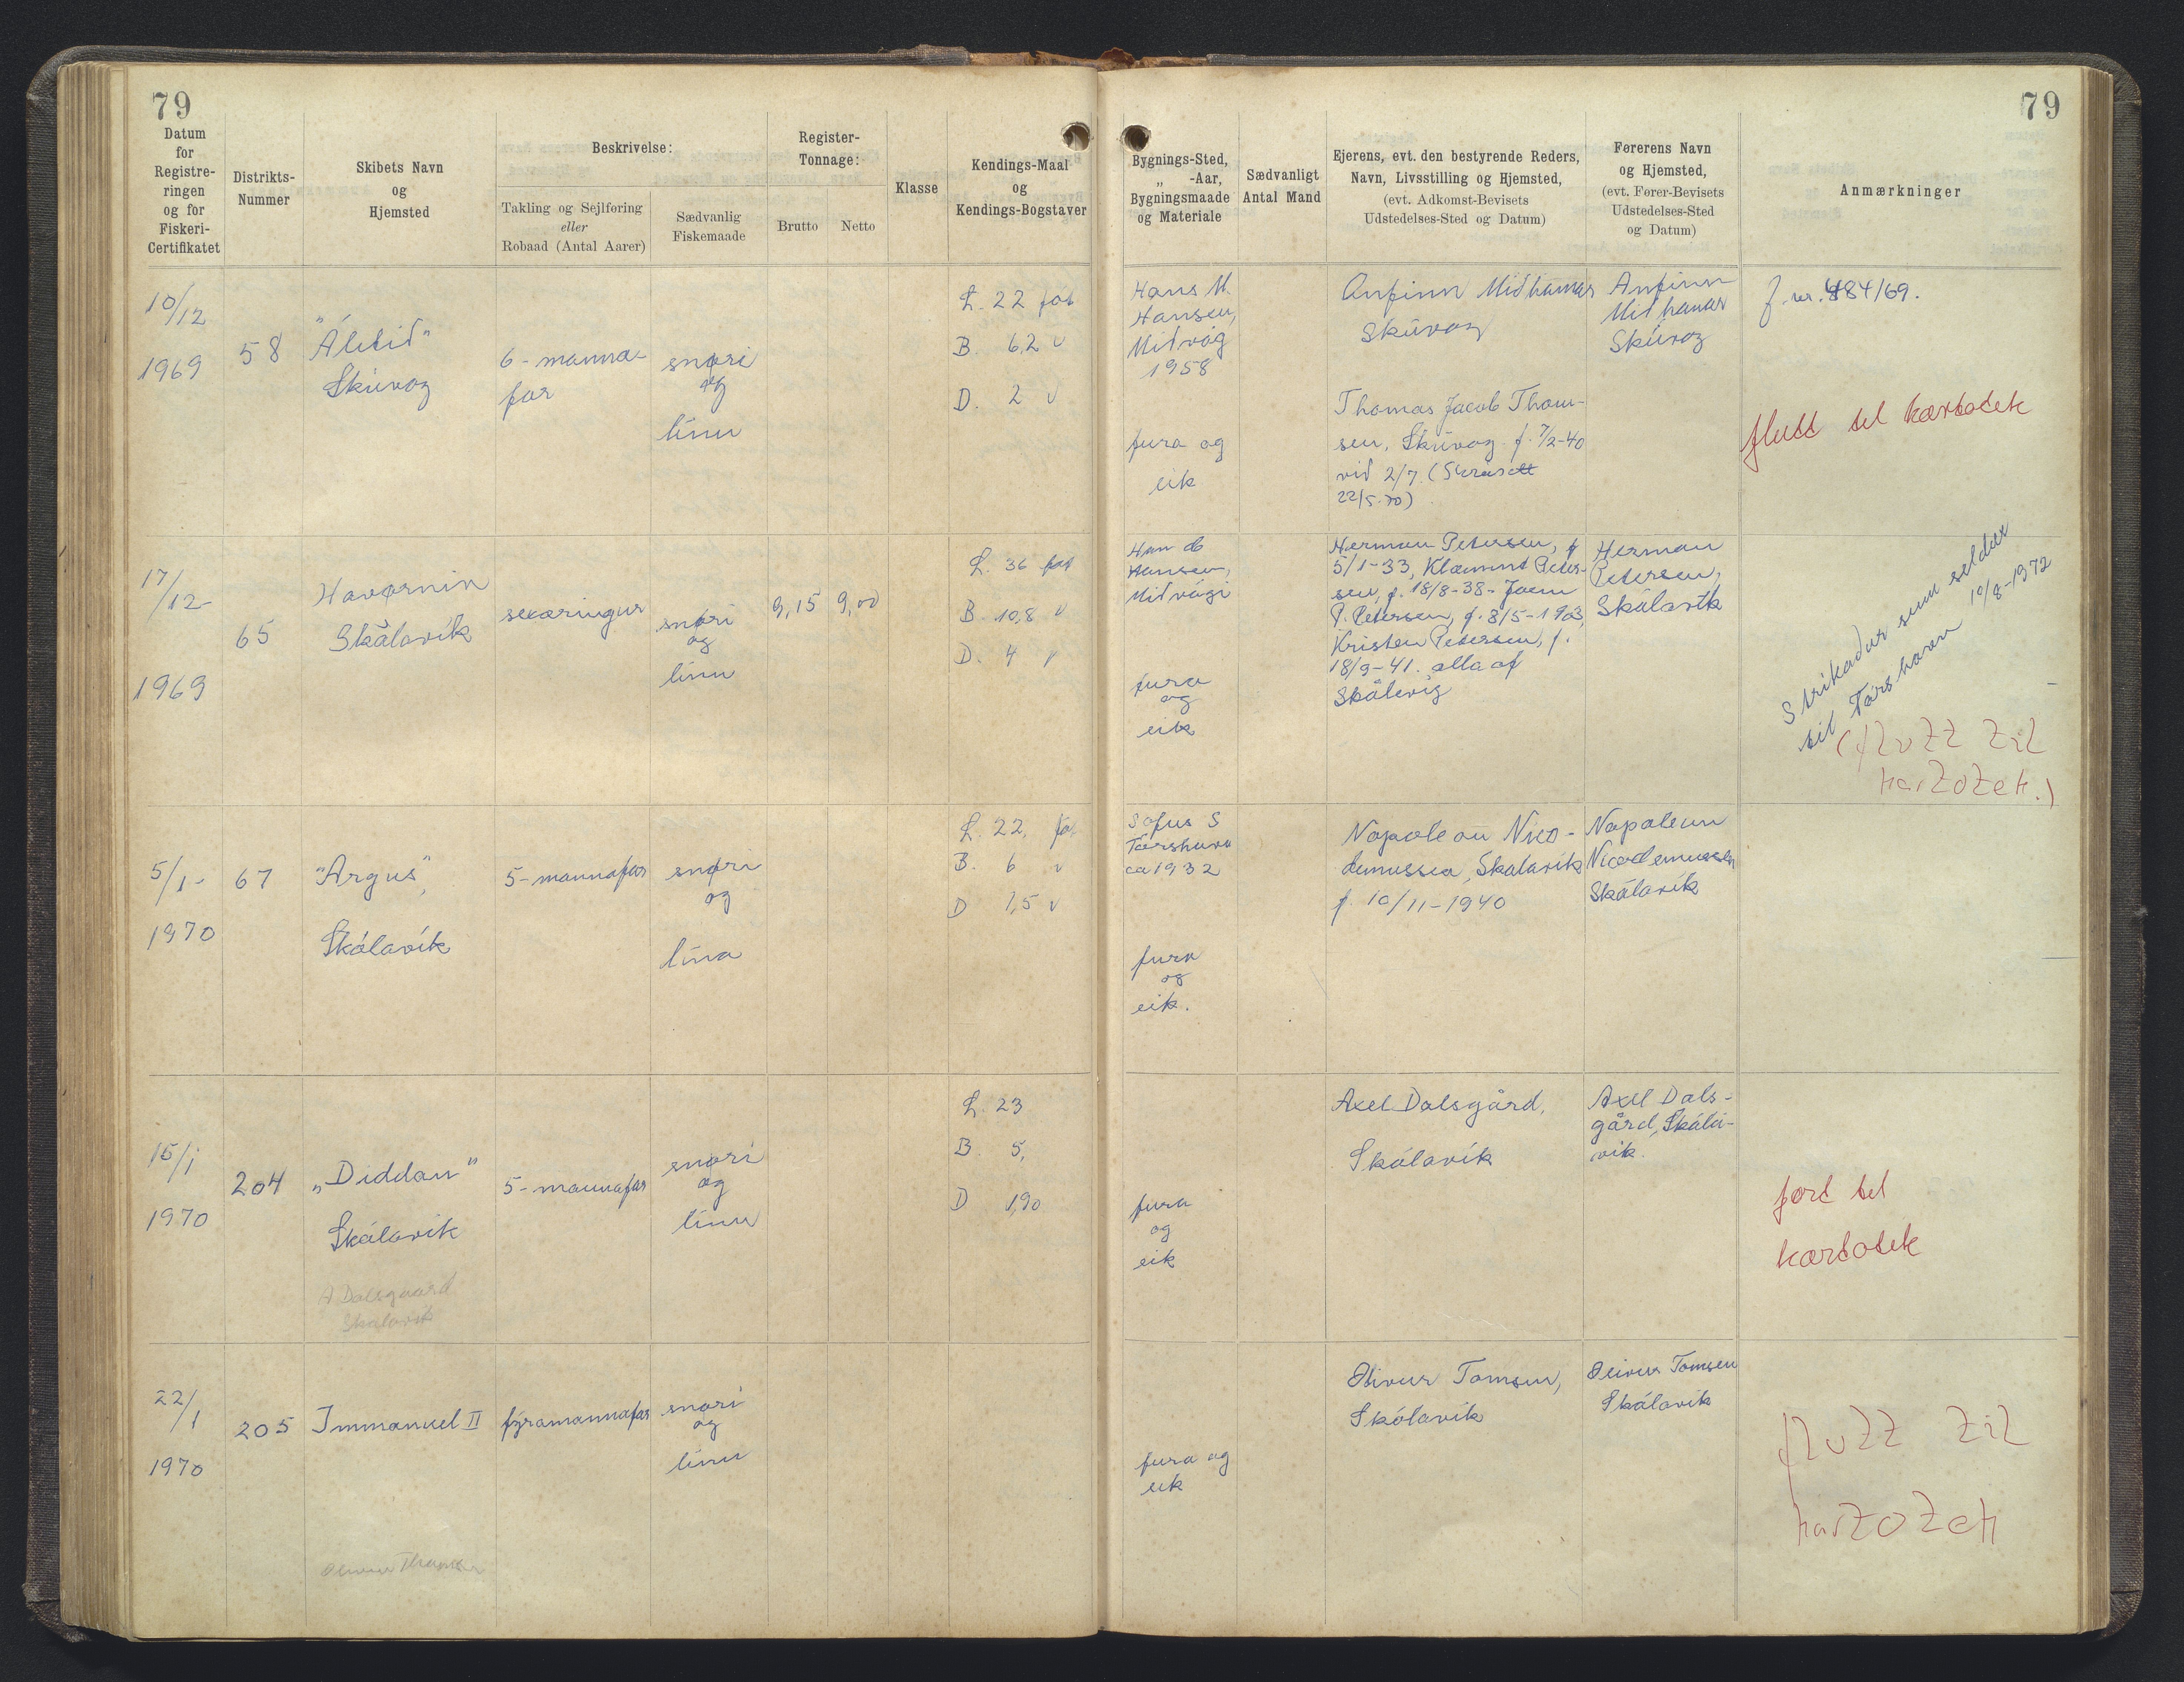 79
79
Datum
for
Registre-
ringen
og for
Fiskeri-
Certifikatet
Distrikts-
Nummer
Skibets Navn
og
Hjemsted
Beskrivelse:
Takling og Sejlføring
eller
Robaad (Antal Aarer)
Sædvanlig
Fiskemaade
Register-
Tonnage:
Brutto
Netto
Klasse
Kendings-Maal
og
Kendings-Bogstaver
Bygnings-Sted,
„ -Aar,
Bygningsmaade
og Materiale
Sædvanligt
Antal Mand
Ejerens, evt. den bestyrende Reders,
Navn, Livsstilling og Hjemsted,
(evt. Adkomst-Bevisets
Udstedelses-Sted og Datum)
Førerens Navn
og Hjemsted,
(evt. Fører-Bevisets
Udstedelses-Sted
og Datum)
Anmærkninger
10/12
1969
58
"Álitið"
Skúvoy
6-manna-
far
snøri
og
línu
L. 22 fót
B. 6,2 "
D. 2 "
Hans M.
Hansen,
Miðvág
1958
fura og
eik
Anfinn Miðhamar
Skúvoy
Thomas Jacob Thom-
sen, Skúvoy. f. 7/2-40
við 2/7 (Skrásett
22/5-70)
Anfinn
Miðhamar
Skúvoy
f. nr. 484/69.
flutt til kartotek
17/12-
1969
65
Havørnin
Skálavík
sexæringur
snøri
og
línu
9,15
9,00
L. 36 fót
B. 10,8 "
D. 4 "
Hansen,
Miðvági
fura
og
eik
Herman Petersen, f
5/1-33, Klæmint Peter-
sen, f. 18/8-38- Joen
P. Petersen, f. 8/5-1903,
Kristen Petersen, f.
18/9-41. alla af
Skálavig
Herman
Petersen,
Skálavík
Strikaður sum seldur
til Tórshavn 10/8-1972
(flutt til
kartotek.)
5/1-
1970
67
"Argus",
Skálavík
5-mannafar
snøri
og
lína
L. 22, fót
B. 6 "
D 1,5 "
Sofus S
Tórshavn
ca 1932
fura
og
eik.
Napoleon Nico-
demussen, Skálavík
f. 10/11-1940
Napoleon
Nicodemussen
Skálavík
15/1
1970
204
„Diddan"
Skálavík
A Dalsgaard
Skálavík
5-mannafar
snøri
og
línu
L. 23
B. 5,
D 1,90
fura
og
eik
Axel Dalsgård,
Skálavík
Axel Dals-
gård, Skála-
vík.
ført til
kartotek
22/1
1970
205
Immanuel II
fýramannafar
snøri
og
línu
fura og
eik
Olivur Tomsen,
Skálavík
Olivur Tomsen
Skálavík
flutt til
kartotek